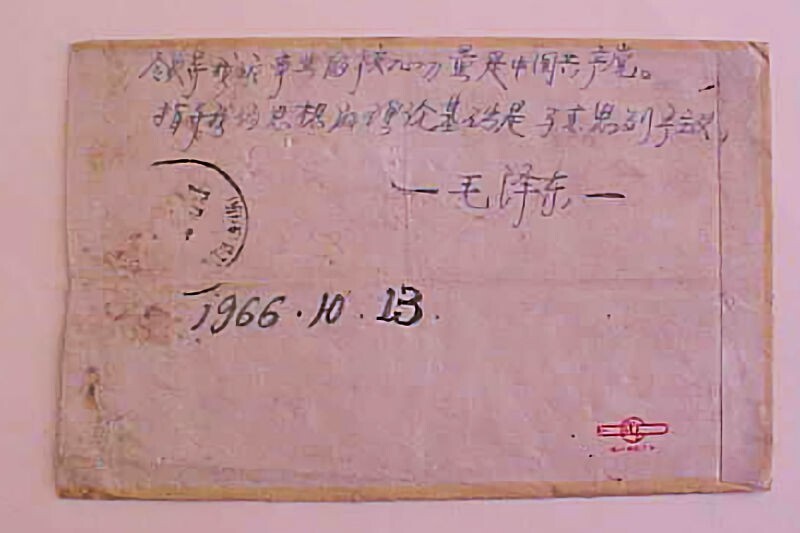 领导我们事业的核心力量是中国共产党。
指导我们思想的理论基础是马克思列宁主义,
—毛泽东—
1966.10.13.